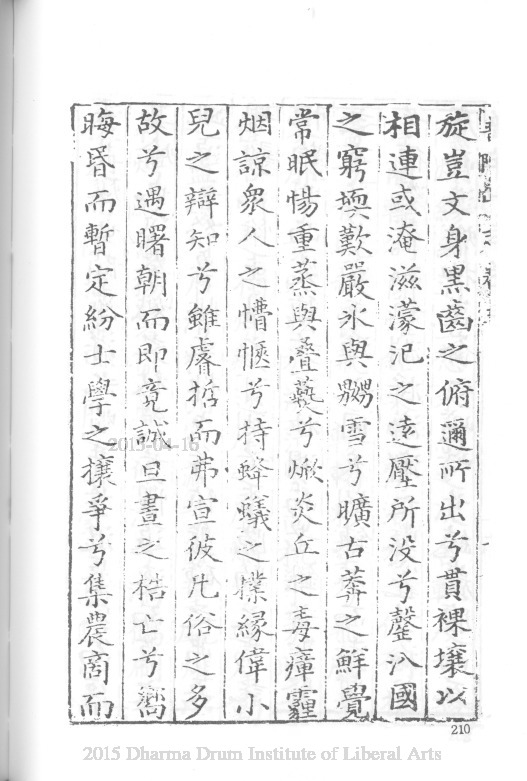 旋豈文身黒齒之俯邇所出兮貫裸壤以
相連或淹滋濛汜之逺壓所没兮罄汃國
之窮堧歎嚴氷與雪兮曠古莽之鮮覺
常眠惕重蒸與疊爇兮炎丘之毒瘴霾
烟諒衆人之懵兮持蜂蟻之撲緣偉小
兒之辯知兮雖睿哲而弗宣彼凡俗之多
故兮遇曙朝而即竟誠旦晝之梏亡兮嚮
晦昬而暫定紛士學之攘爭兮集農商而
210
2015-04-16
2015 Dharma Drum Institute of Liberal Arts